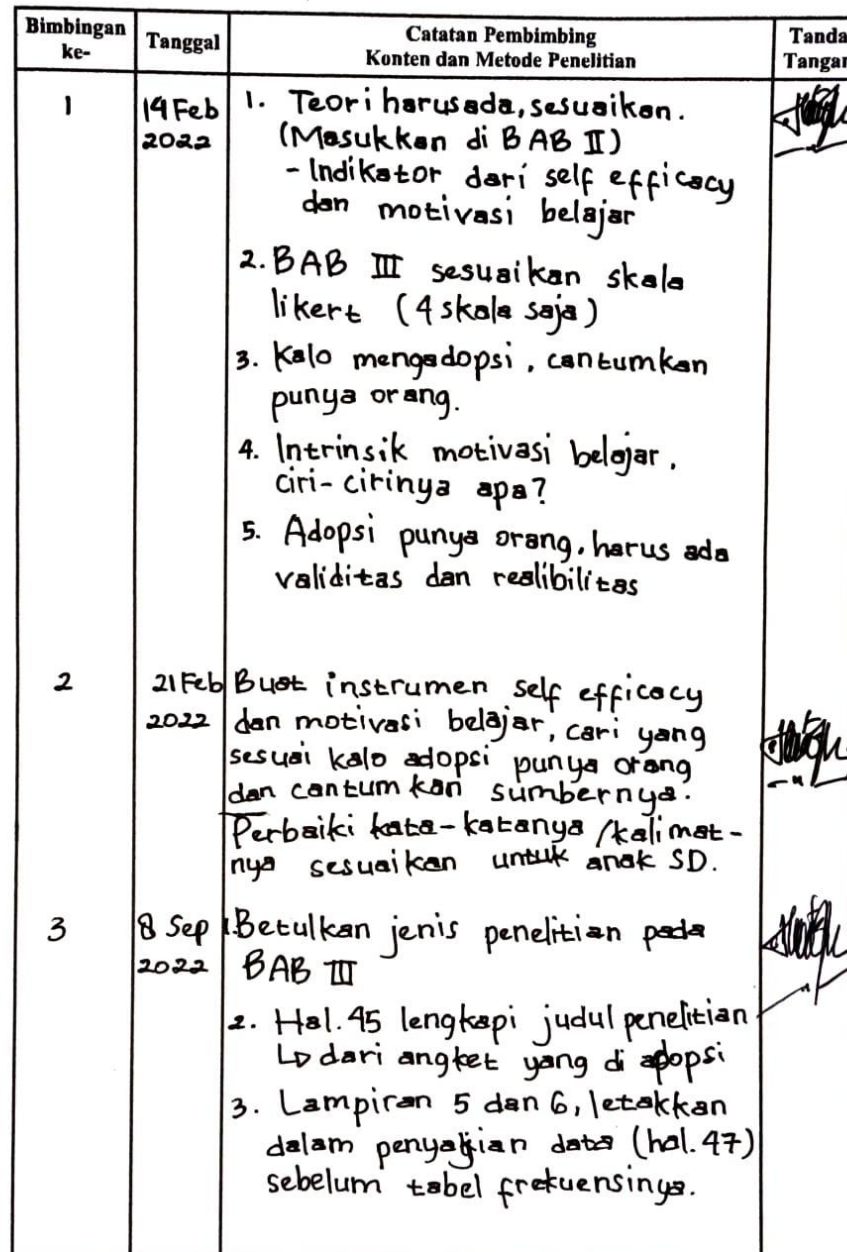 Bimbingan ke- Tanggal Catatan Pembimbing Tanda
Konten dan Metode Penelitian Tangan
1 14 Feb 2022 1. Teori harus ada, sesuaikan.
(Masukkan di BAB II)
- Indikator dari self efficacy
dan motivasi belajar
2. BAB III sesuaikan skala
likert (4 skala saja)
3. Kalo mengadopsi, cantumkan
punya orang.
4. Intrinsik motivasi belajar,
ciri-cirinya apa?
5. Adopsi punya orang, harus ada
validitas dan realibilitas
2 21 Feb 2022 Buat instrumen self efficacy
dan motivasi belajar, cari yang
sesuai kalo adopsi punya orang
dan cantumkan sumbernya.
Perbaiki kata-katanya/kalimat-
nya sesuaikan untuk anak SD.
3 8 Sep 2022 1. Betulkan jenis penelitian pada
BAB III
2. Hal. 45 lengkapi judul penelitian
↳ dari angket yang di adopsi
3. Lampiran 5 dan 6, letakkan
dalam penyajian data (hal. 47)
sebelum tabel frekuensinya.